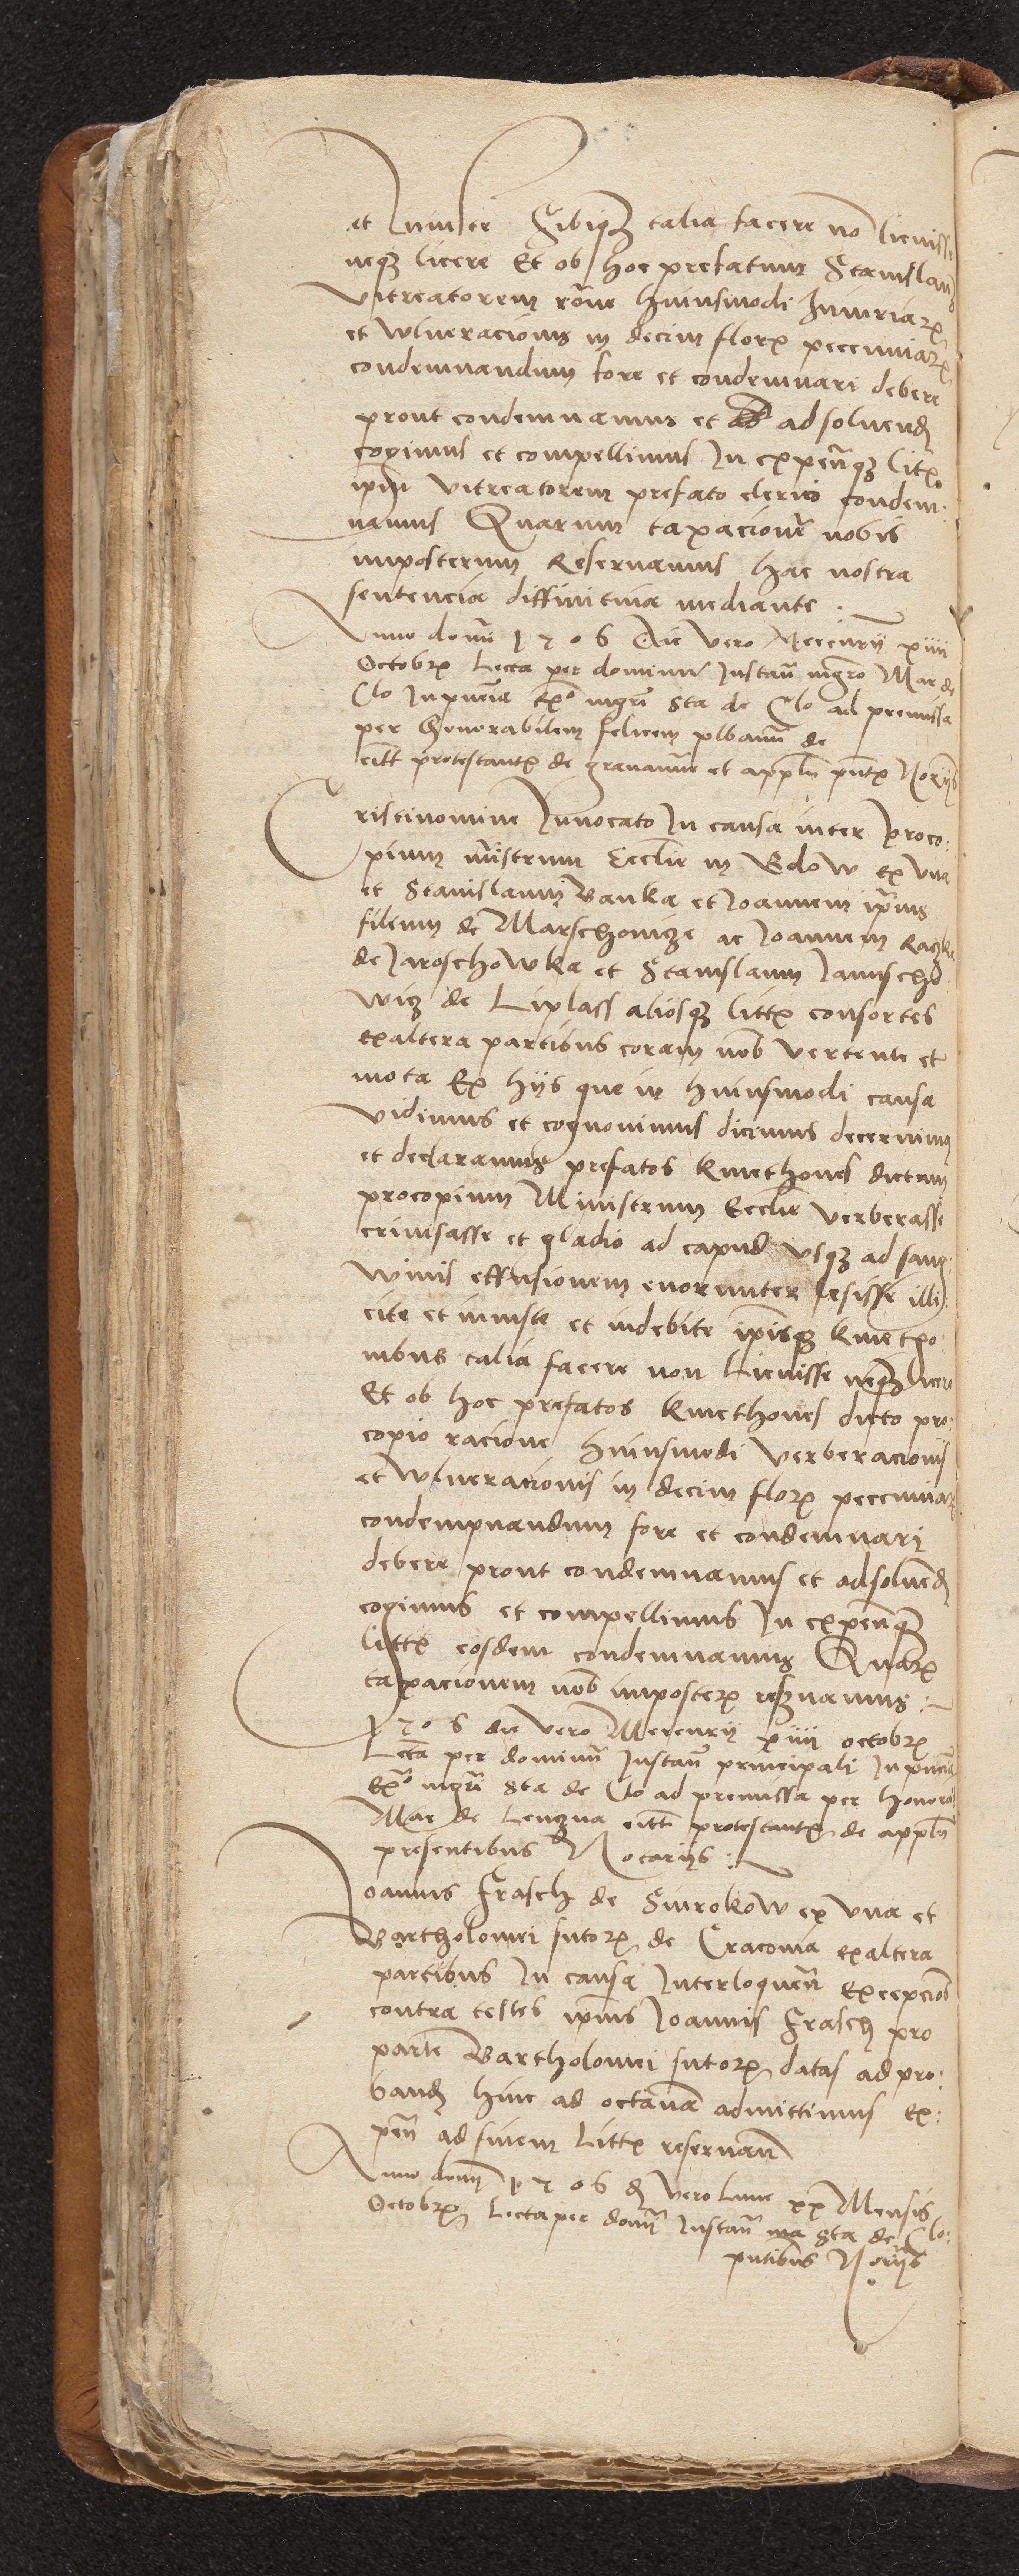 et iniuste Sibiq₃ talia facere no̅ licuisse
neq₃ licere Et ob hoc prefatum Stanislau̅
vitreatorem ro̅ne huiusmodi Iniuriaꝝ
et vulneracionis in decim floꝝ pecuniaꝝ
condemnandum fore et condemnari debere
prout condemnamus et ad soluend̅
cogimus et compellimus In expen̅q₃ litꝭ
ip̅m vitreatorem prefato clerico condem:
namus Quarum taxacione̅ nobis
imposterum Reseruamus hac nostra
sentencia diffinitiua mediante :
Anno domi̅ 1506 die vero Mercurij xiiii
Octobrꝭ Lecta per dominu̅ Instan̅ mgr̅o Mar de
Clo In pn̅cia mgr̅i Sta de Clo ad premissa
per honorabilem felicem plbanu̅ de
citt̅ protestantꝭ de grauami̅e et app̅ln̅ pn̅tꝭ Nor̅ijs
Cristi nomine Inuocato In causa inter Proco:
pium mi̅strum Eccl̅ie in Gdow ex vna
et Stanislaum Banka et Ioannem ip̅ius
filium de Marschouicze ac Ioannem Raczka
de Jaroschowka et Stanislaum Janischo
wicz de Liplass aliosq₃ littꝭ consortes
ex altera partibus coram nob̅ vertente et
mota Ex hijs que in huiusmodi causa
vidimus et cognouimus dicimus decernimus
et declaramus prefatos kmethones dictum
procopium Ministrum Eccl̅ie verberasse
crinisasse et gladio ad capud vsq₃ ad sang:
winis effusionem enormiter lesisse illi:
cite et iniuste et indebite ip̅isq₃ kmetho:
nibus talia facere non Licuisse neq₃ licere
Et ob hoc prefatos kmethones dicto pro:
copio racione huiusmodi verberacionis
et vulneracionis in decim floꝝ pecuniaꝝ
condempnandum fore et condemnari
debere prout condemnamus et ad soluend̅
cogimus et compellimus In expen̅q₃
littꝭ eosdem condemnamus Quaꝝ
taxacionem nob̅ imposteꝝ reseruamus :
1506 die vero Mercurij xiiii octobrꝭ
Lecta per dominu̅ Instan̅ principali In pn̅cia
mgr̅i Sta de Clo ad premissa per honora
Mar de Lengua citt̅ protestantꝭ de app̅ln̅
presentibus Notarijs :
Ioannis Frasch de Sirokow ex vna et
Bartholomei sutorꝭ de Cracouia ex altera
partibus In causa Interloquen̅ Excepcio̅s
contra testes ip̅ius Ioannis Frasch pro
parte Bartholomei sutorꝭ datas ad pro:
band̅ hinc ad octaua̅ admittimus Ex:
pen̅ ad finem Littꝭ reseruan̅
Anno domi̅ 1506 d̅ vero Lune xx Mensis
Octobrꝭ Lecta per domi̅ Instan̅ ma Sta de Clo:
pn̅tibus Nor̅ijs